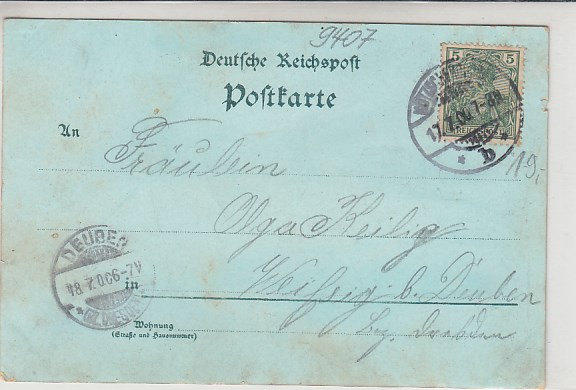 9407
Deutsche Reichspost
Postkarte
5 5
REICHSPOST
17.7.00. 7-8
b
19,-
An
Fräulein
Olga Keilig
DEUBEN
18.7.00.6-7V
(BZ. DRESDEN)
in Weissig b. Deuben
Bez. Dresden
Wohnung
(Straße und Hausnummer)